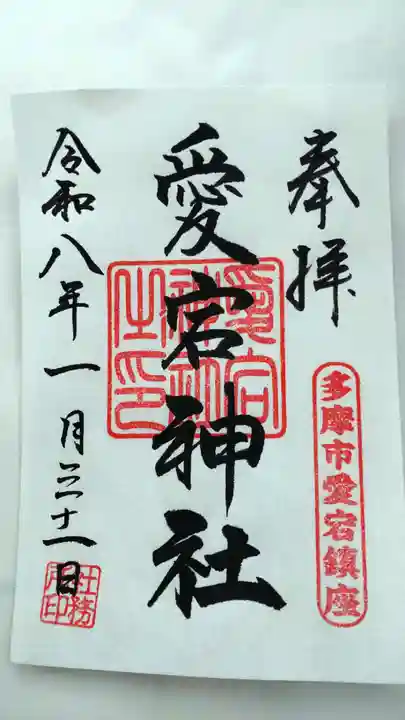 奉拝
多摩市愛宕鎮座
愛宕神社
愛宕神社之印
令和八年一月三十一日
社務所印